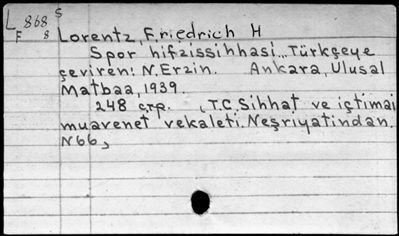 L 868 S
F 8 Lorentz, Friedrich H
Spor hifzissihhasi... Türkçeye
çeviren: N. Erzin. Ankara, Ulusal
Matbaa, 1939.
248 s. (T.C. Sihhat ve içtimai
muavenet vekaleti. Neşriyatindan.
N66,